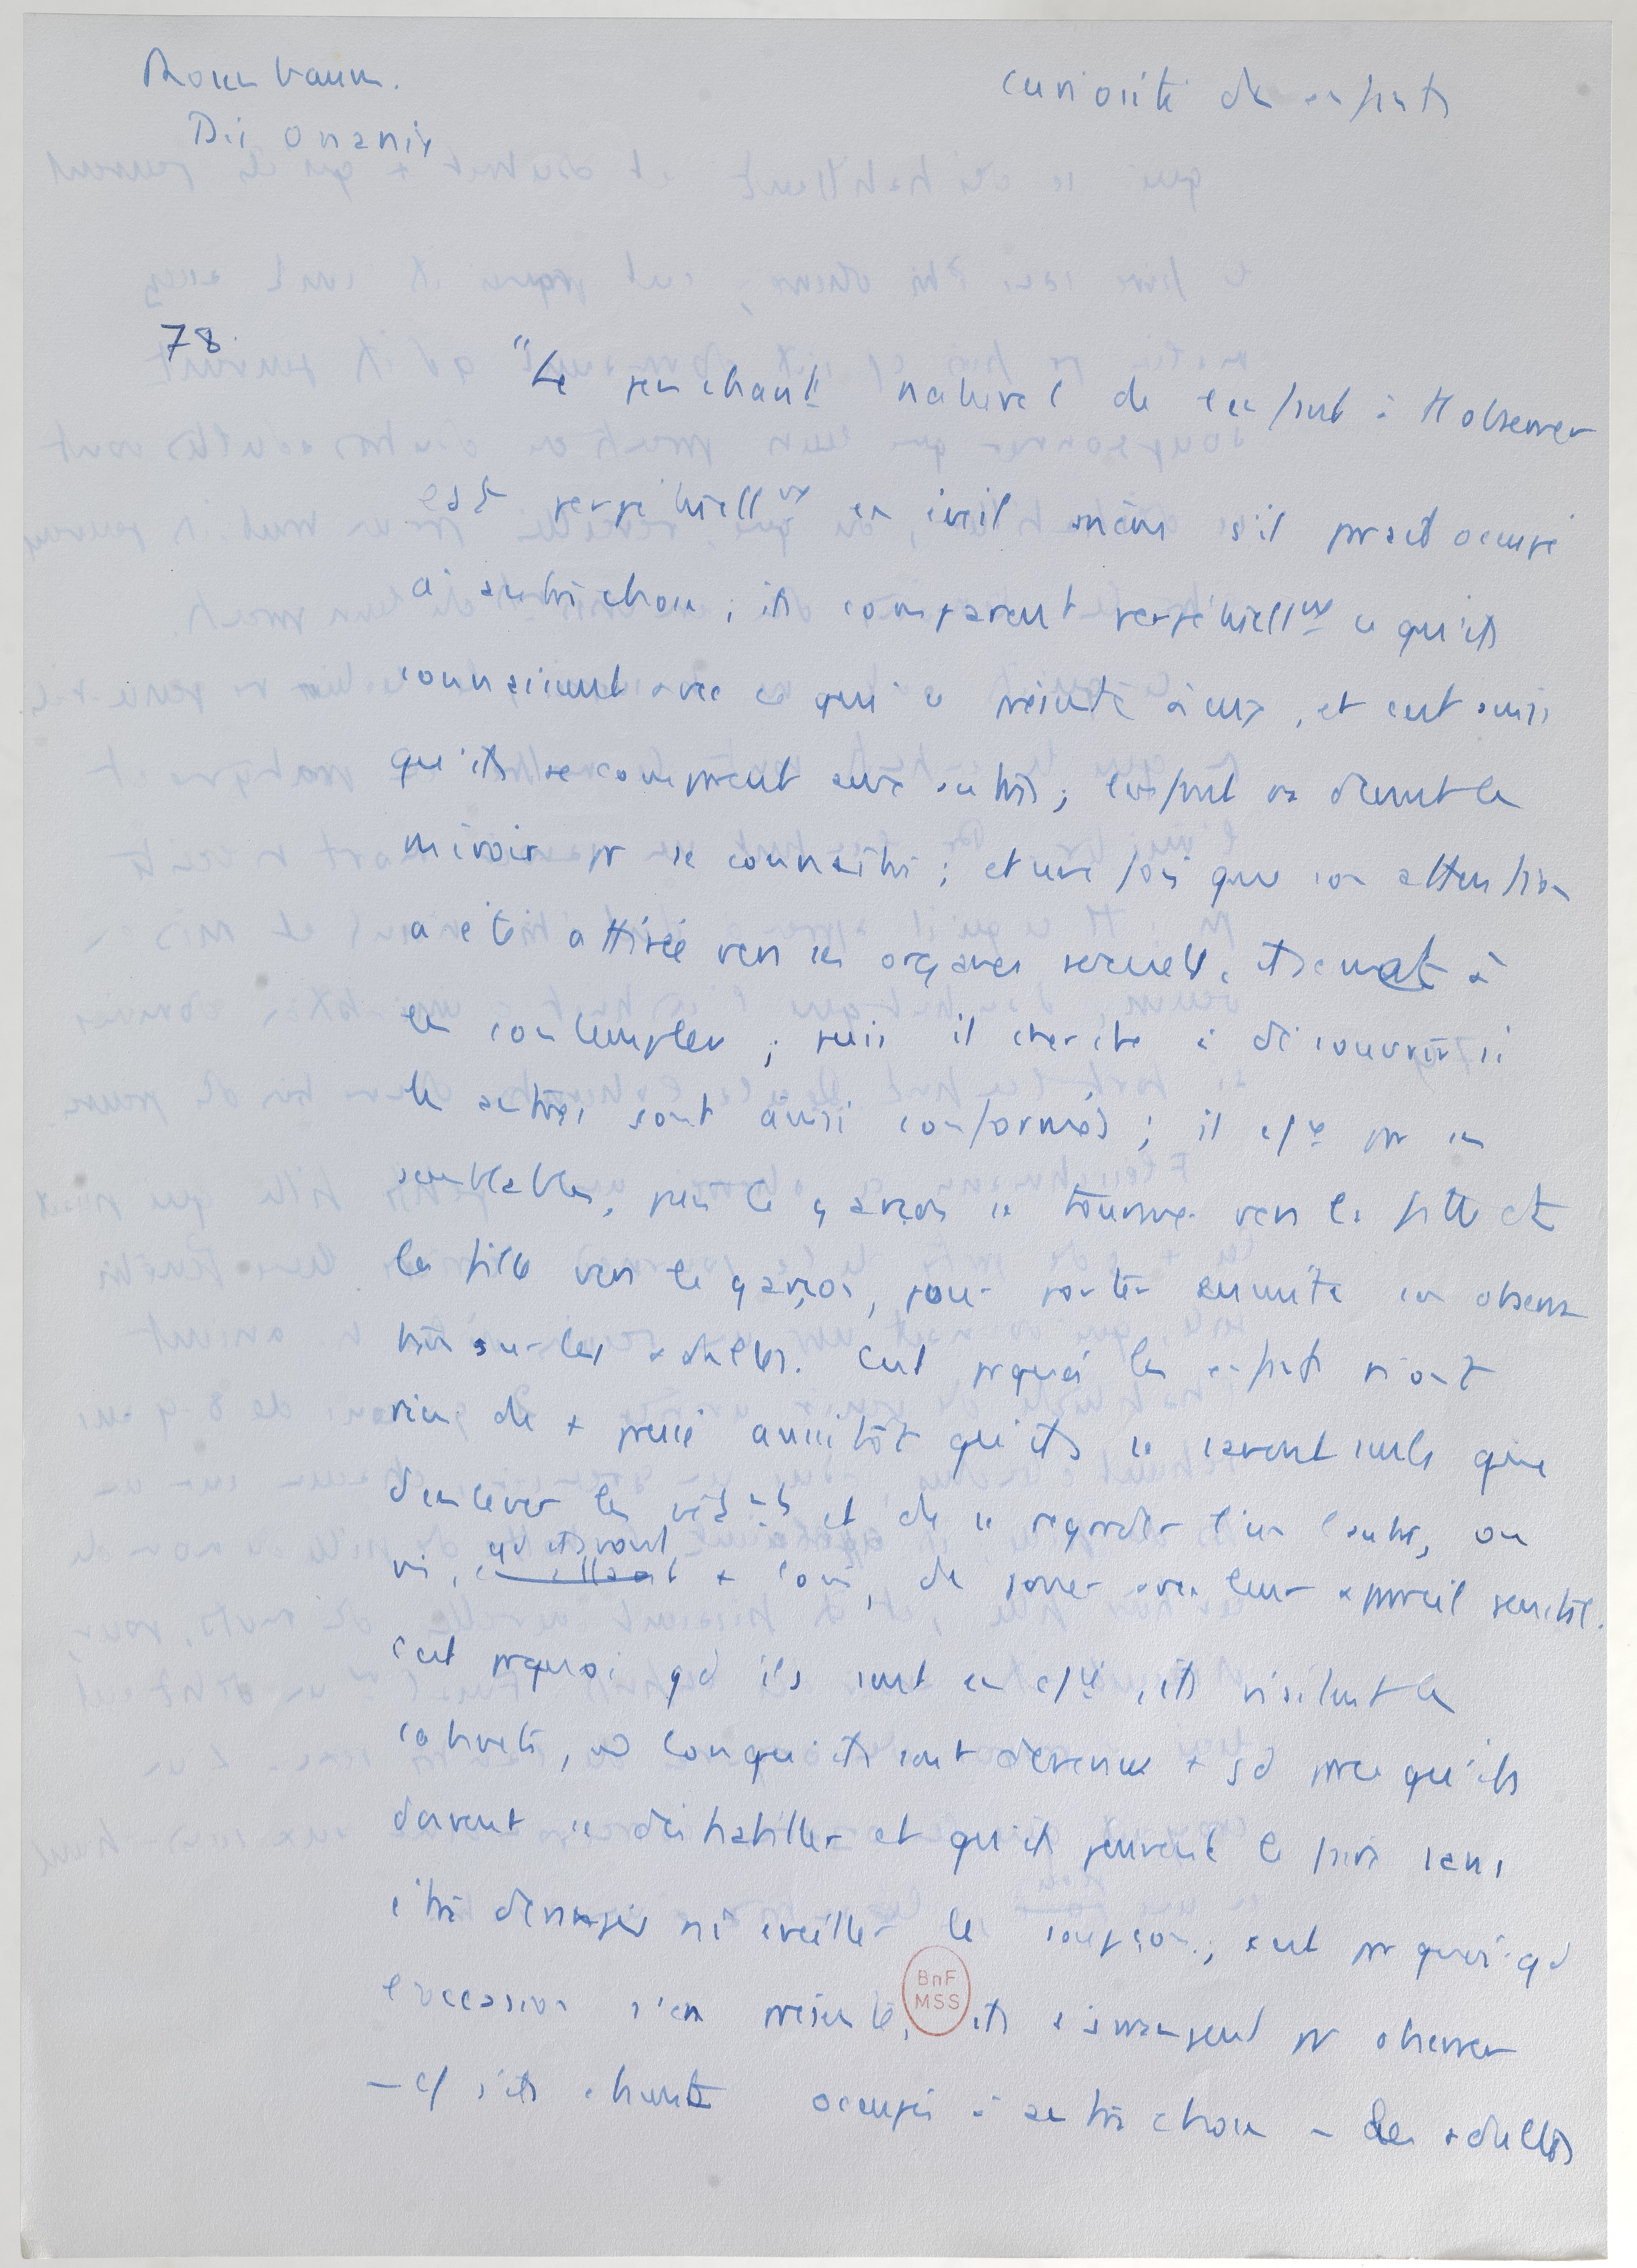 Rosenbaum.
Die Onanie
curiosité des enfants
78
"Le penchant naturel de l'enfant à tt observer
est perpétuellnt en éveil même s'il paraît occupé
à autre chose ; ils comparent perpétuellnt ce qu'ils
connaissent avec ce qui se présente à eux, et c'est ainsi
qu'ils se comparent aux autres ; l'enfant va devant le
miroir pr se connaître ; et une fois que son attention
a été attirée vers ses organes sexuels, à
les contempler ; puis il cherche à découvrir si
les autres sont ainsi conformés ; il cfce par ses
semblables, puis le garçon se tourne vers la fille et
la fille vers le garçon, pour porter ensuite son observa
tion sur les adultes. C'est pquoi les enfants n'ont
rien de + pressé aussitôt qu'ils se savent seuls que
d'enlever les vêtnts et de se regarder l'un l'autre, ou
qd ils vont
+ loin, de jouer avec leur appareil génital.
C'est pquoi qd ils sont en cfie ils visitent les
cabinets, lorsqu'ils sont devenus + gd parce qu'ils
doivent se déshabiller et qu'ils peuvent le faire sans
être dérangés ni éveiller le soupçon ; c'est pr quoi qd
l'occasion s'en présente, ils s'arrangent pr observer
– cf s'ils étaient occupés à autre chose – les adultes
BnF
MSS